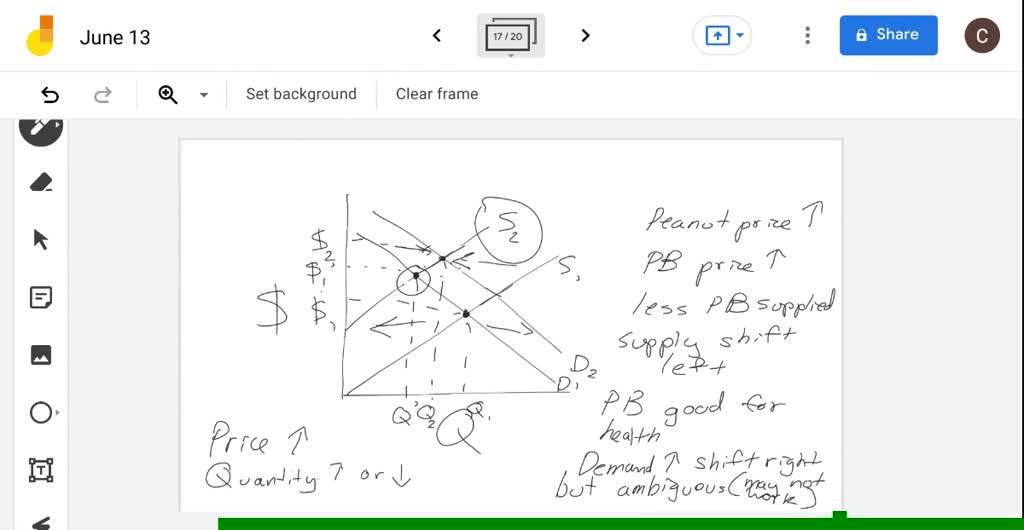 June 13
17 / 20
Share
C
Set background
Clear frame
S2
$2
$1'
S1
$
$1
D2
D1
Q' Q2 Q1
Q
Price ↑
Quantity ↑ or ↓
Peanut price ↑
PB price ↑
less PB supplied
supply shift
left
PB good for
health
Demand ↑ shift right
but ambiguous (may not
work)